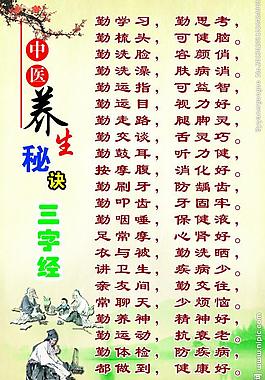 中医养生秘诀
三字经
勤学习，勤思考。
勤梳头，可健脑。
勤洗脸，容颜俏。
勤洗澡，肤病消。
勤运指，可益智。
勤运目，视力好。
勤走路，腿脚灵。
勤交谈，舌灵巧。
勤鼓耳，听力好。
按摩腹，消化好。
勤刷牙，防龋齿。
勤叩齿，牙固牢。
勤咽唾，保健液。
足常摩，心肾好。
衣与被，勤洗晒。
讲卫生，疾病少。
亲友间，勤交往。
常聊天，少烦恼。
勤养神，精神好。
勤运动，抗衰老。
勤体检，防疾病。
都做到，健康好。
www.nipic.com